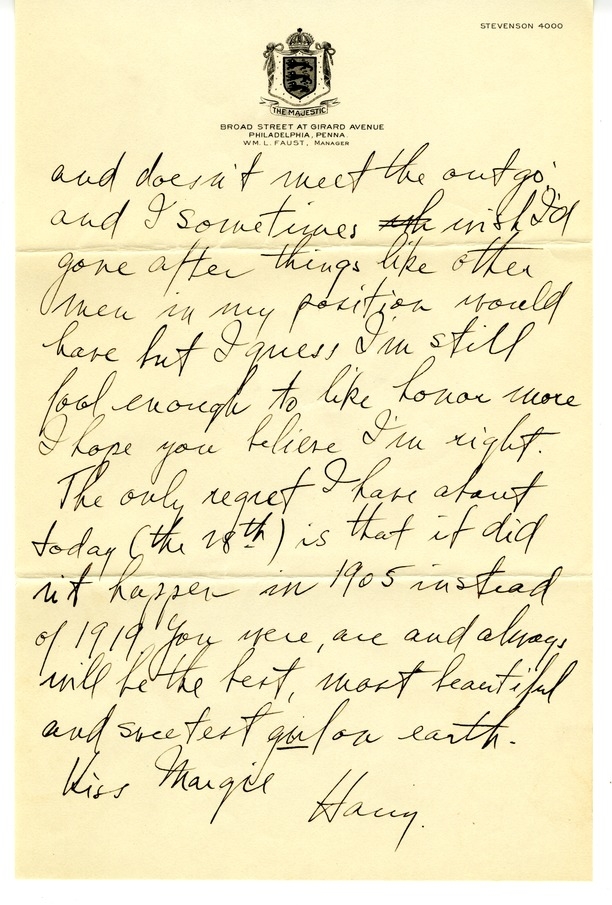 STEVENSON 4000
THE MAJESTIC
BROAD STREET AT GIRARD AVENUE
PHILADELPHIA, PENNA.
WM. L. FAUST, MANAGER
and doesn't meet the outgo
and I sometimes wish I'd
gone after things like other
men in my position would
have but I guess I'm still
fool enough to like honor more
I hope you believe I'm right.
The only regret I have about
today (the 28th) is that it did
n't happen in 1905 instead
of 1919 You were, are and always
will be the best, most beautiful
and sweetest girl on earth.
Kiss Margie
Harry.